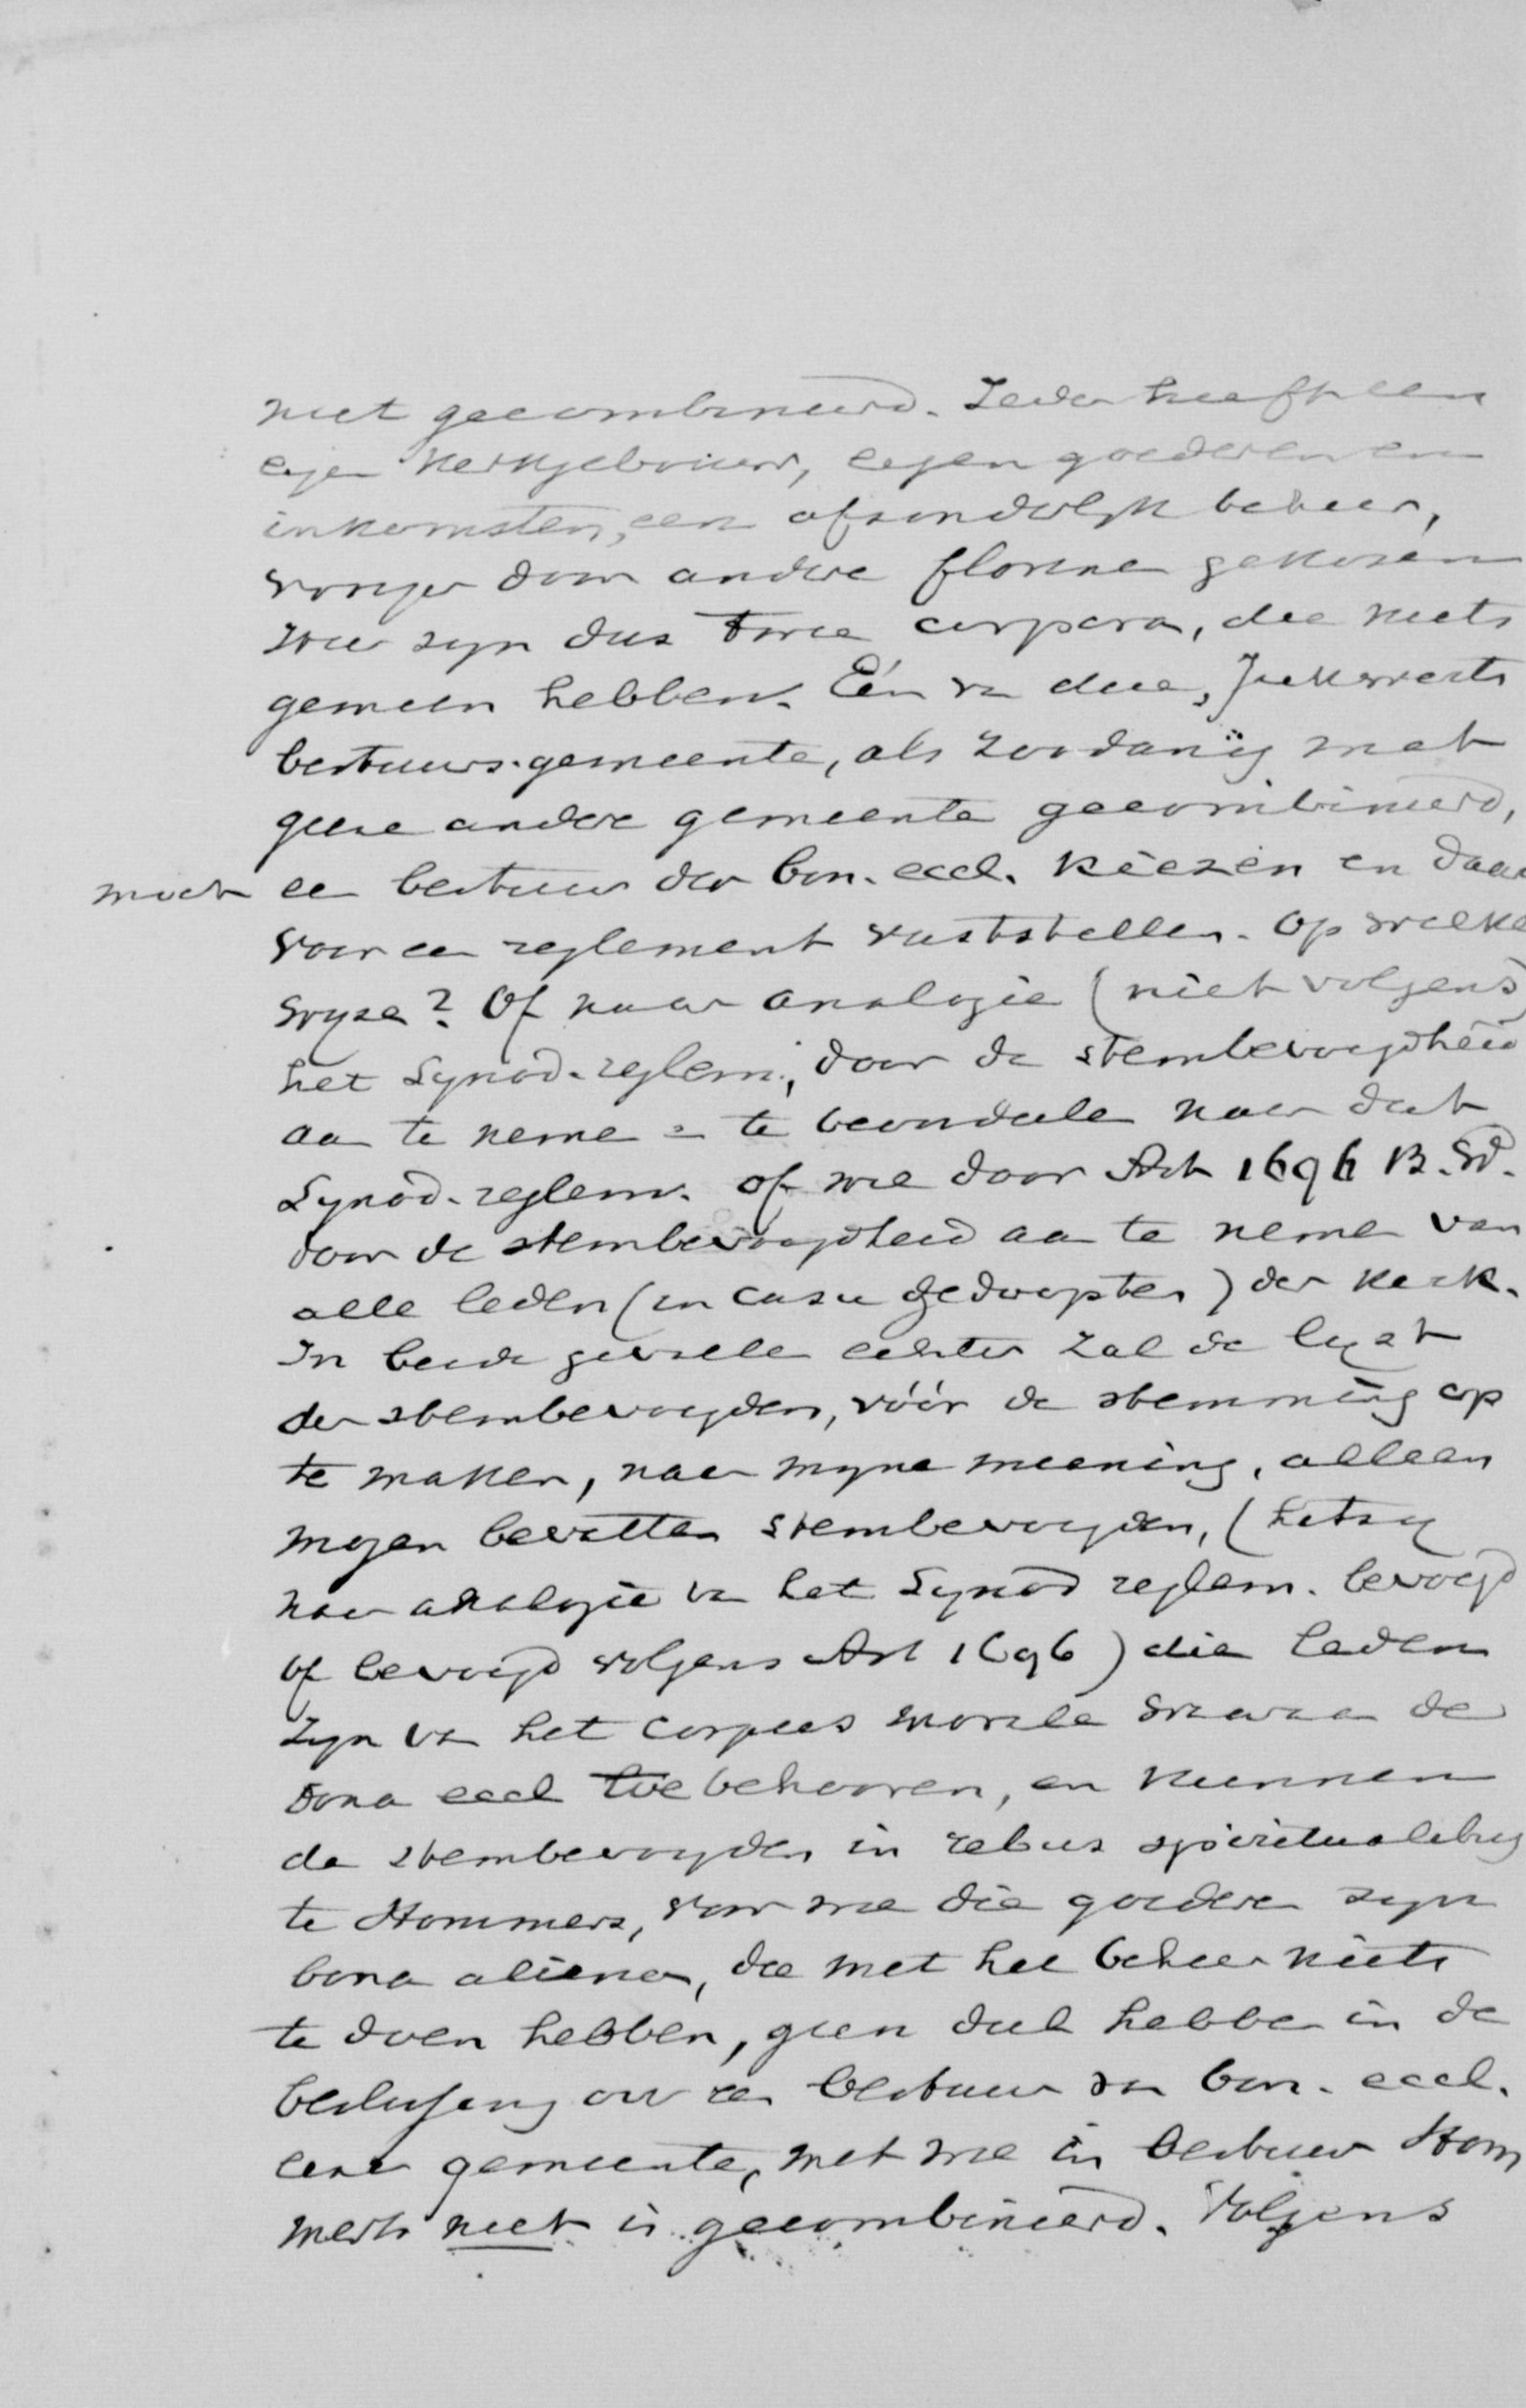 niet gecombineerd. Ieder heeft een
eigen kerkgebouw, eigen goederen en
inkomsten, een afzonderlyk beheer,
vroeger door andere florene gekozen
zyn dus twee corpora, die niets
gemeen hebben. Eén van deze, Jukwerts
bestuurs-gemeente, als zoodanig met
geene andere gemeente gecombineerd,
moet een bestuur der bon. eccl. kiezen en daar
voor een reglement vaststellen. Op welke
wyze? Of naar analogie (niet volgens)
het Synod. reglem., door de stembevoegdheid
aan te nemen en te beoordeelen naar dat
Synod. reglem. of wel door Art 1696 B.W.
door de stembevoegdheid aan te nemen van
alle leden (in casu gedoopten) der kerk.
In beide gevallen echter zal de lyst
der stembevoegden, vóór de stemming op
te maken, naar myne meening, alleen
mogen bevatten stembevoegden, (hetzy
naar analogie van het Synod reglem. bevoegd
of bevoegd volgens Art 1696) die leden
zyn van het corpus morale waaraan de
bona eccl toebehooren, en kunnen
de stembevoegden in rebus spiritualibus
te Stommers, voor wie die goederen zyn
bona aliena, die met het beheer niets
te doen hebben, geen deel hebben in de
beslissing over een bestuur van bon. eccl.
eener gemeente, met wie in bestuur Stom
merts niet is gecombineerd. Volgens